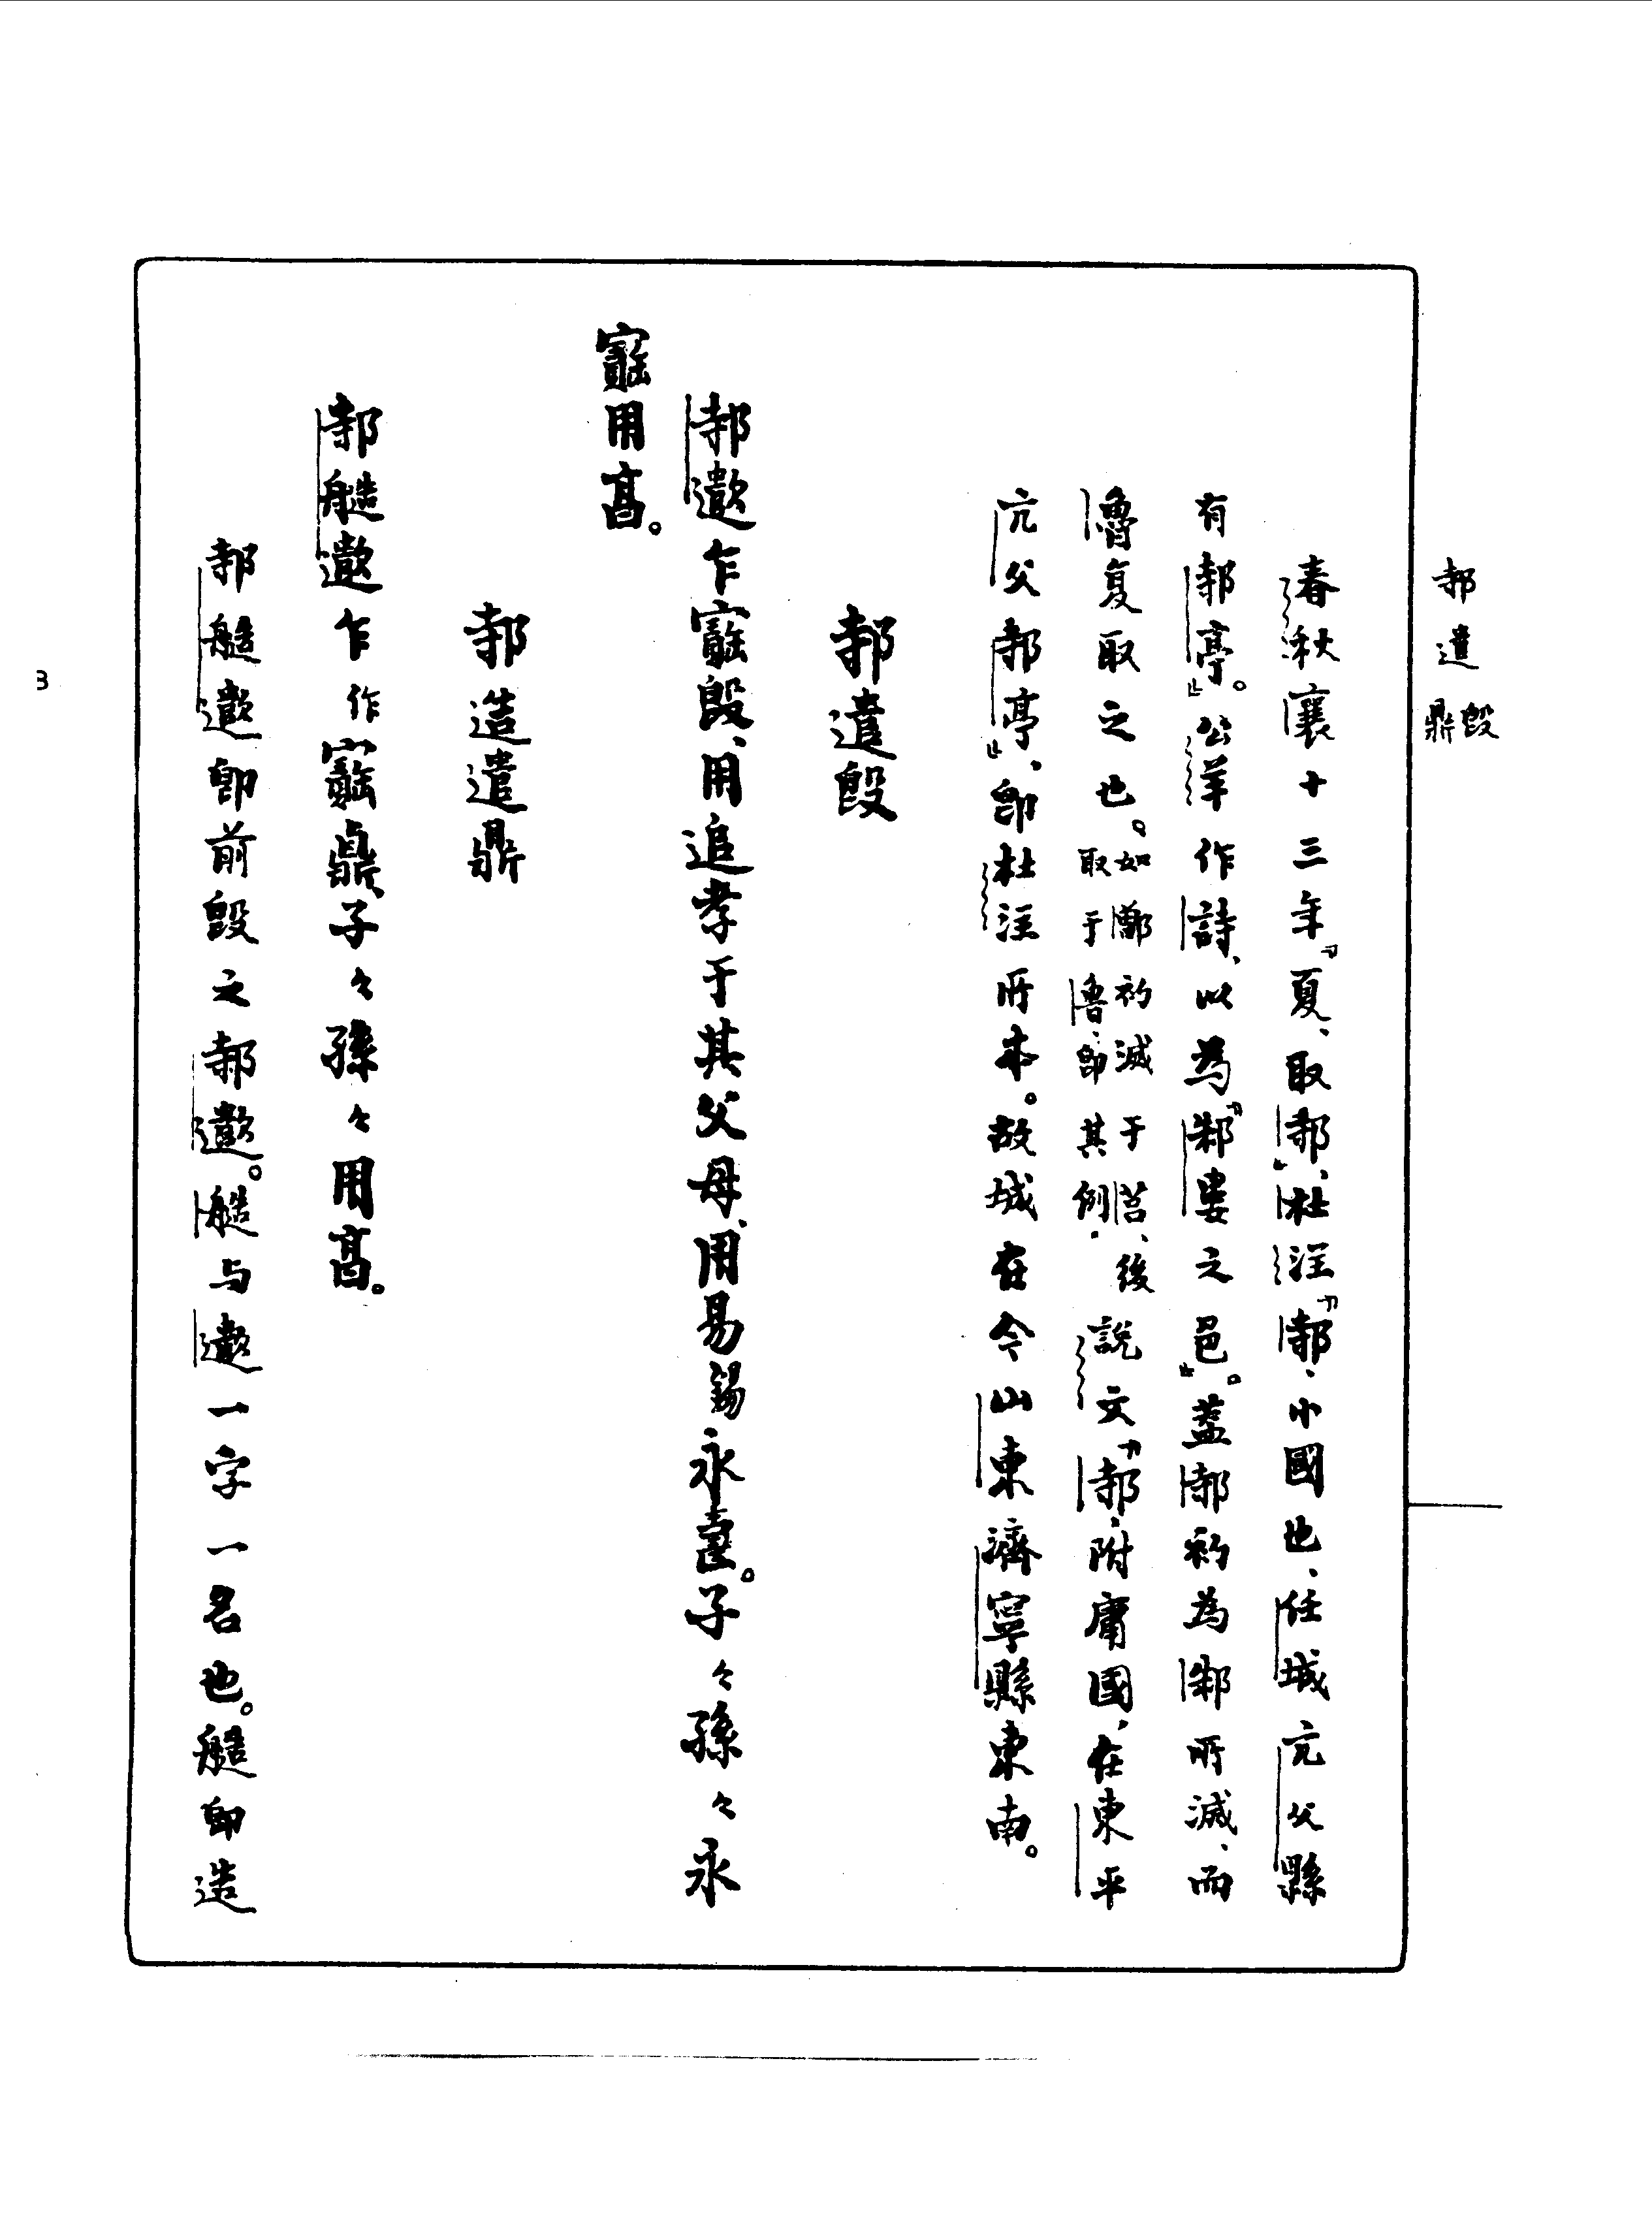 邿遣𣪘鼎
春秋襄十三年『夏、取邿』、杜注『邿、小國也、任城亢父縣
有邿亭』。公羊作詩、以為『邾婁之邑』。蓋邿初為邾所滅、而
魯复取之也。如鄫初滅于莒、後取于魯、即其例。說文『邿、附庸國、在東平
亢父邿亭』、即杜注所本。故城在今山東濟寧縣東南。
邿遣𣪘
邿乍寶𣪘、用追孝于其父母、用易錫永壽。子々孫々永
寶用亯。
邿造遣鼎
邿艁乍作寶鼎、子々孫々用亯。
邿艁即前𣪘之邿。艁与一字一名也。艁即造